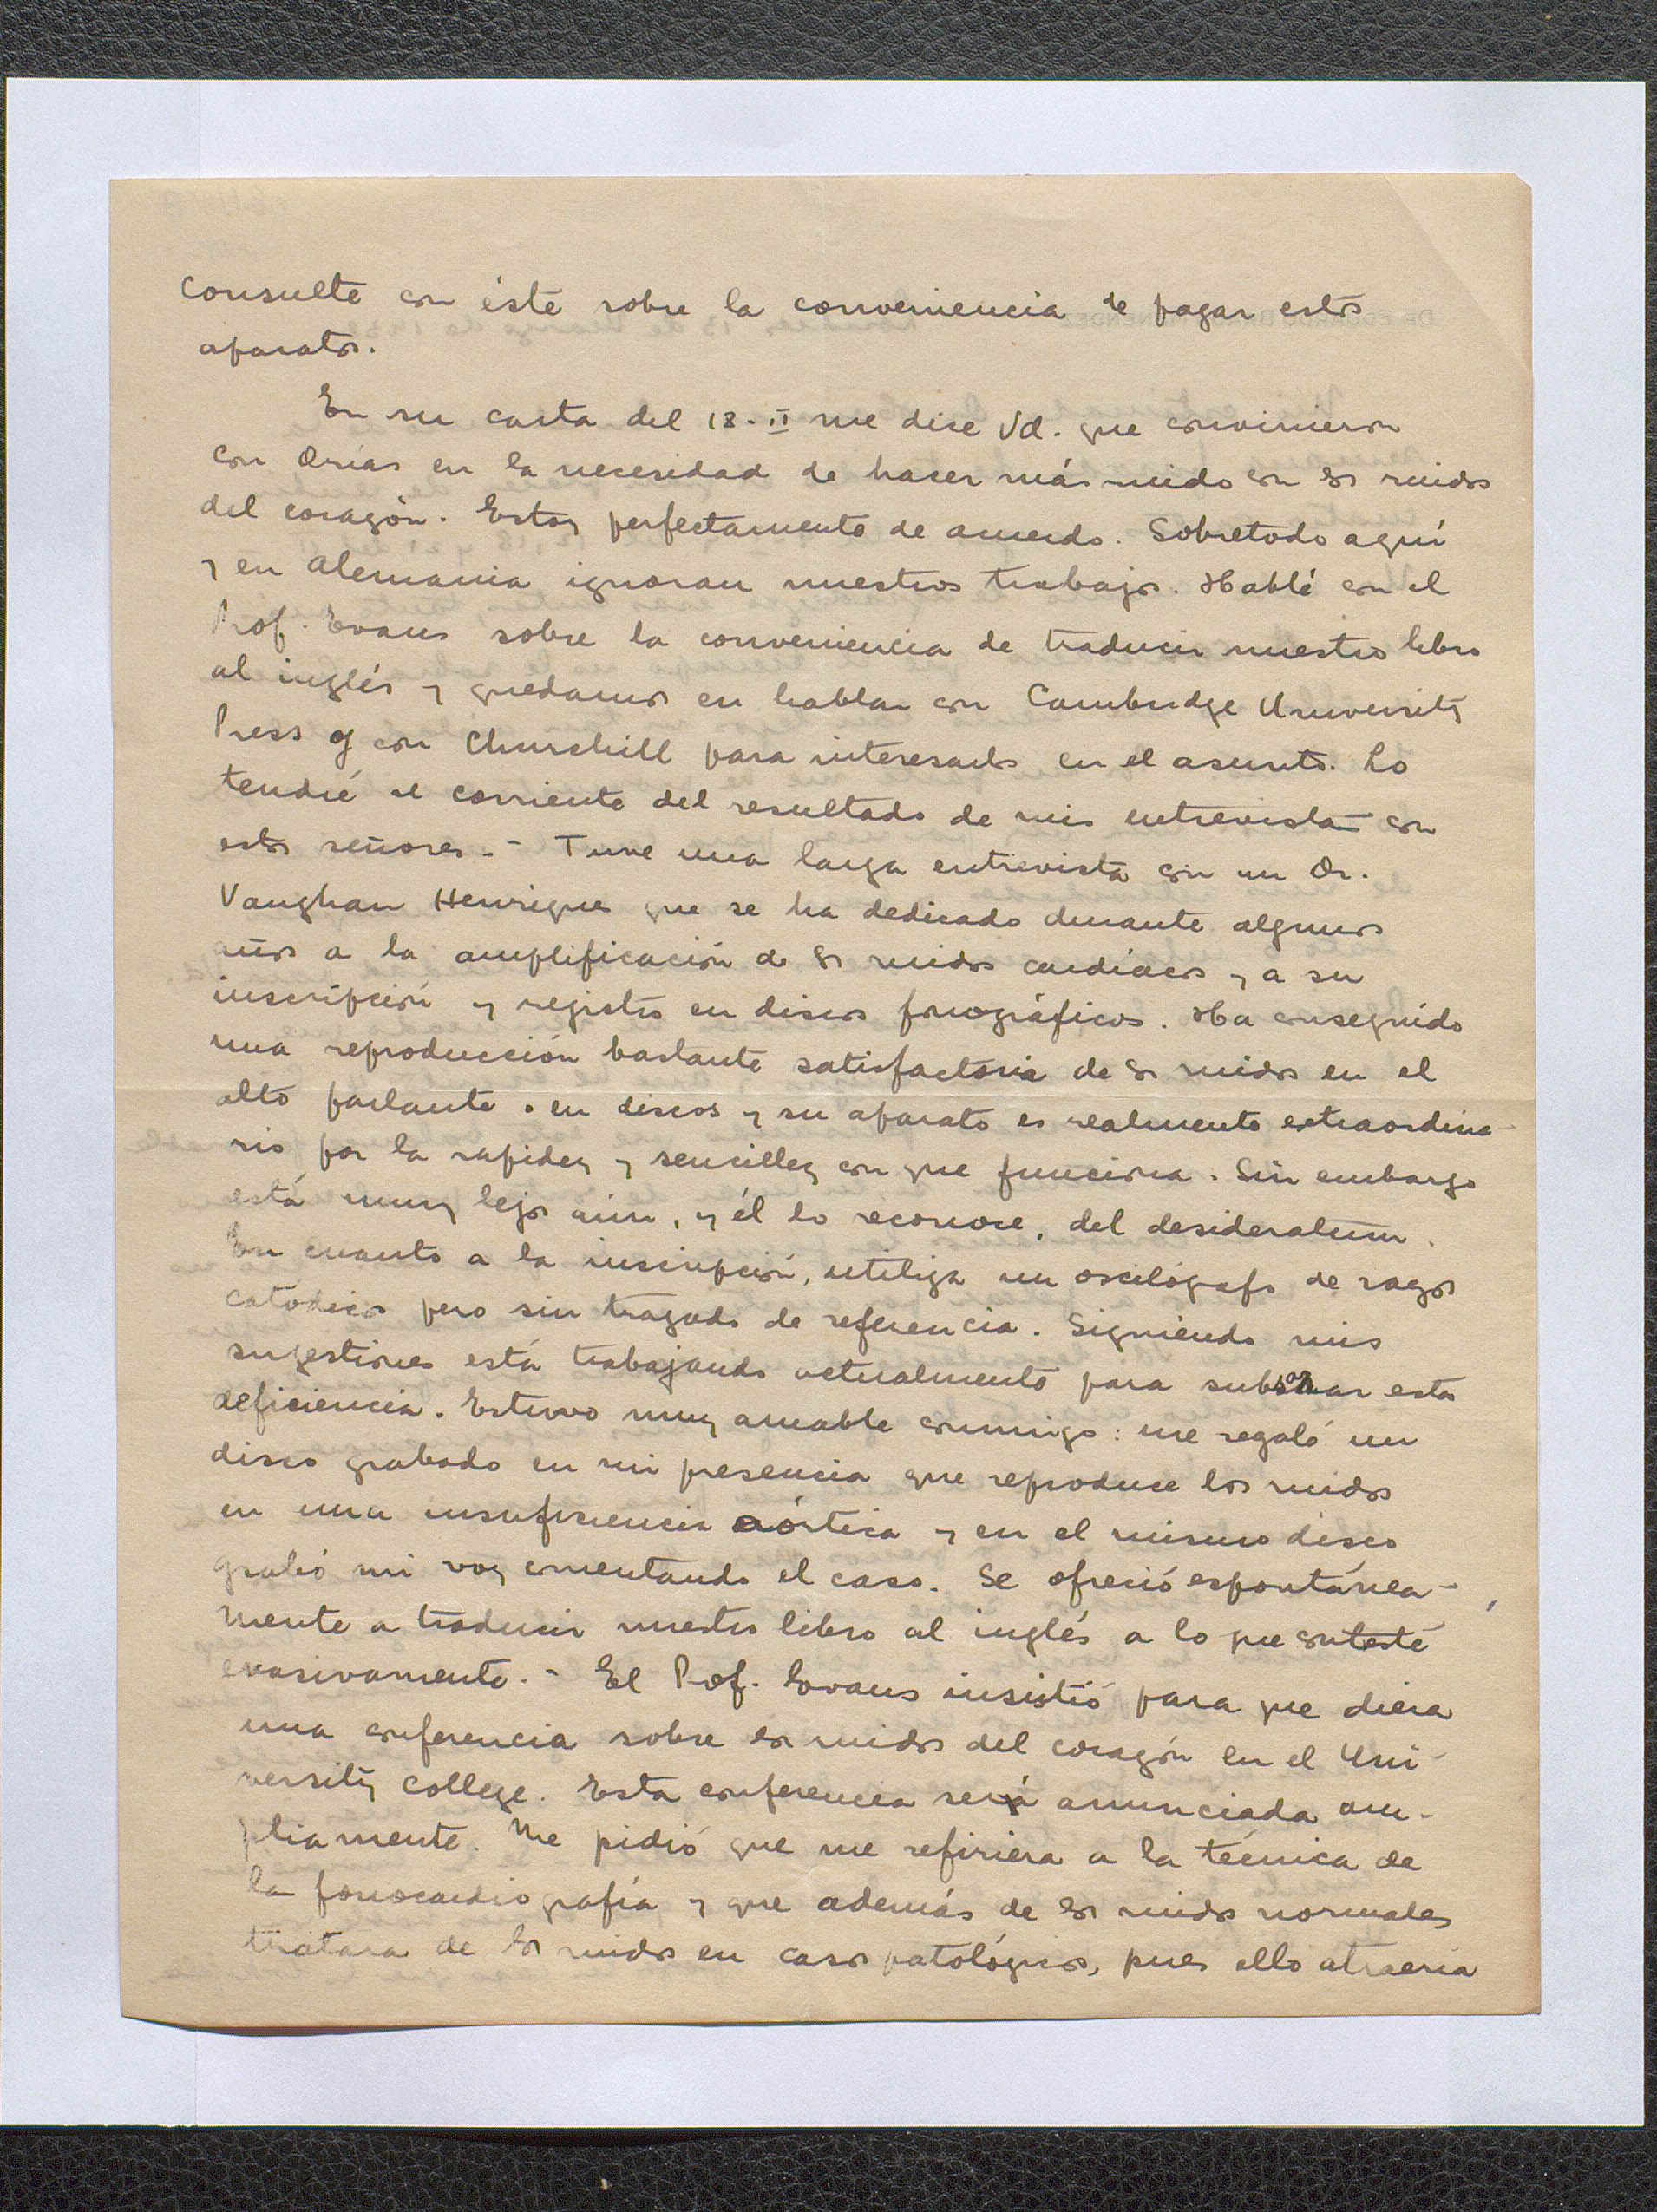 consulte con éste sobre la conveniencia de pagar estos
aparatos.
En su carta del 18-II me dice Vd. que convinieron
con Orías en la necesidad de hacer más ruido con los ruidos
del corazón. Estoy perfectamente de acuerdo. Sobretodo aquí
y en Alemania ignoran nuestros trabajos. Hablé con el
Prof. Evans sobre la conveniencia de traducir nuestro libro
al inglés y quedamos en hablar con Cambridge University
Press y con Churchill para interesarlos en el asunto. Lo
tendré al corriente del resultado de mis entrevistas con
estos señores.- Tuve una larga entrevista con un Dr.
Vaughan Henriques que se ha dedicado durante algunos
años a la amplificación de los ruidos cardíacos y a su
inscripción y registro en discos fonográficos. Ha conseguido
una reproducción bastante satisfactoria de los ruidos en el
alto parlante o en discos y su aparato es realmente extraordina-
rio por la rapidez y sencillez con que funciona. Sin embargo
está muy lejos aún, y él lo reconoce, del desideratum.
En cuanto a la inscripción, utiliza un oscilógrafo de rayos
catódicos pero sin trazado de referencia. Siguiendo mis
sugestiones está trabajando actualmente para subsanar esta
deficiencia. Estuvo muy amable conmigo: me regaló un
disco grabado en mi presencia que reproduce los ruidos
en una insuficiencia aórtica y en el mismo disco
grabó mi voz comentando el caso. Se ofreció espontánea-
mente a traducir nuestro libro al inglés a lo que contesté
evasivamente.- El Prof. Evans insistió para que diera
una conferencia sobre los ruidos del corazón en el Uni-
versity College. Esta conferencia será anunciada am-
pliamente. Me pidió que me refiriera a la técnica de
la fonocardiografía y que además de los ruidos normales
tratara de los ruidos en casos patológicos, pues ello atraería